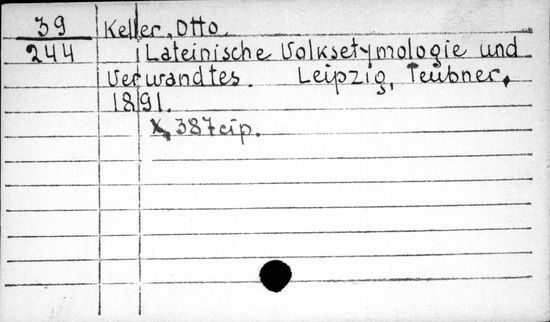 39 Keller, Otto.
244 Lateinische Volksetymologie und
Verwandtes. Leipzig, Teubner,
1891.
X, 387 стр.